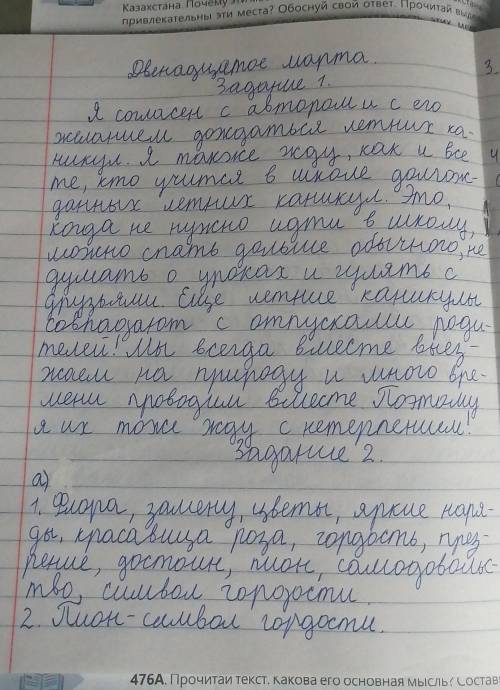 Казахстана. Почему эти
привлекательны эти места? Обоснуй свой ответ. Прочитай
Двенадцатое марта.
3.
Задание 1.
Я согласен с автором и с его
желанием дождаться летних ка-
никул. Я также жду, как и все
те, кто учится в школе долгож-
данных летних каникул. Это,
когда не нужно идти в школу,
можно спать дольше обычного, не
думать о уроках и гулять с
друзьями. Еще летние каникулы
совпадают с отпусками роди-
телей! Мы всегда вместе выез-
жаем на природу и много вре-
мени проводим вместе. Поэтому
я их тоже жду с нетерпением!
Задание 2.
а)
1. Флора, замену, цветы, яркие наря-
ды, красавица роза, гордость, през-
рение, достоин, пион, самодоволь-
тво, символ гордости.
2. Пион-символ гордости.
476А. Прочитай текст. Какова его основная мысль? Состав